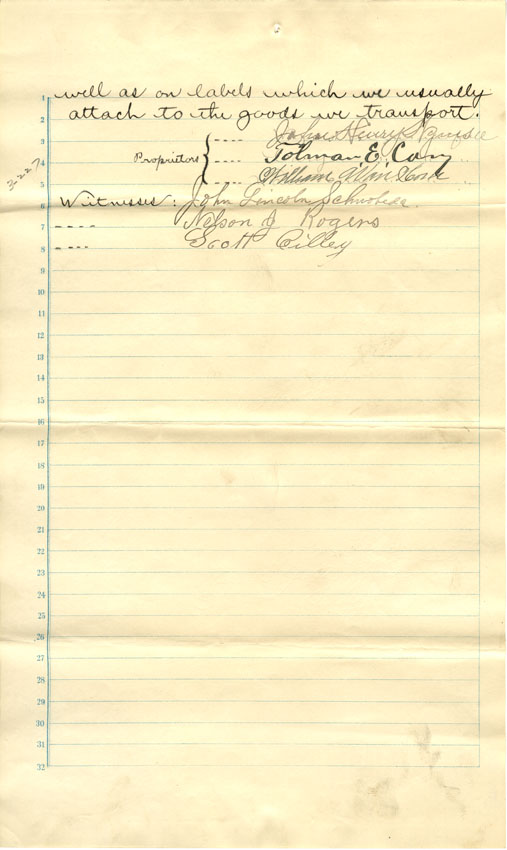 1 well as on labels which we usually
2 attach to the goods we transport.
3 ---- James Henry Squise
4 Proprietors { ---- Tolman, E. Cary
3227
5 ---- William Allen
6 Witnesses: John Lincoln
7 ---- Nelson J Rogers
8 ---- Scott Cilley
9
10
11
12
13
14
15
16
17
18
19
20
21
22
23
24
25
26
27
28
29
30
31
32